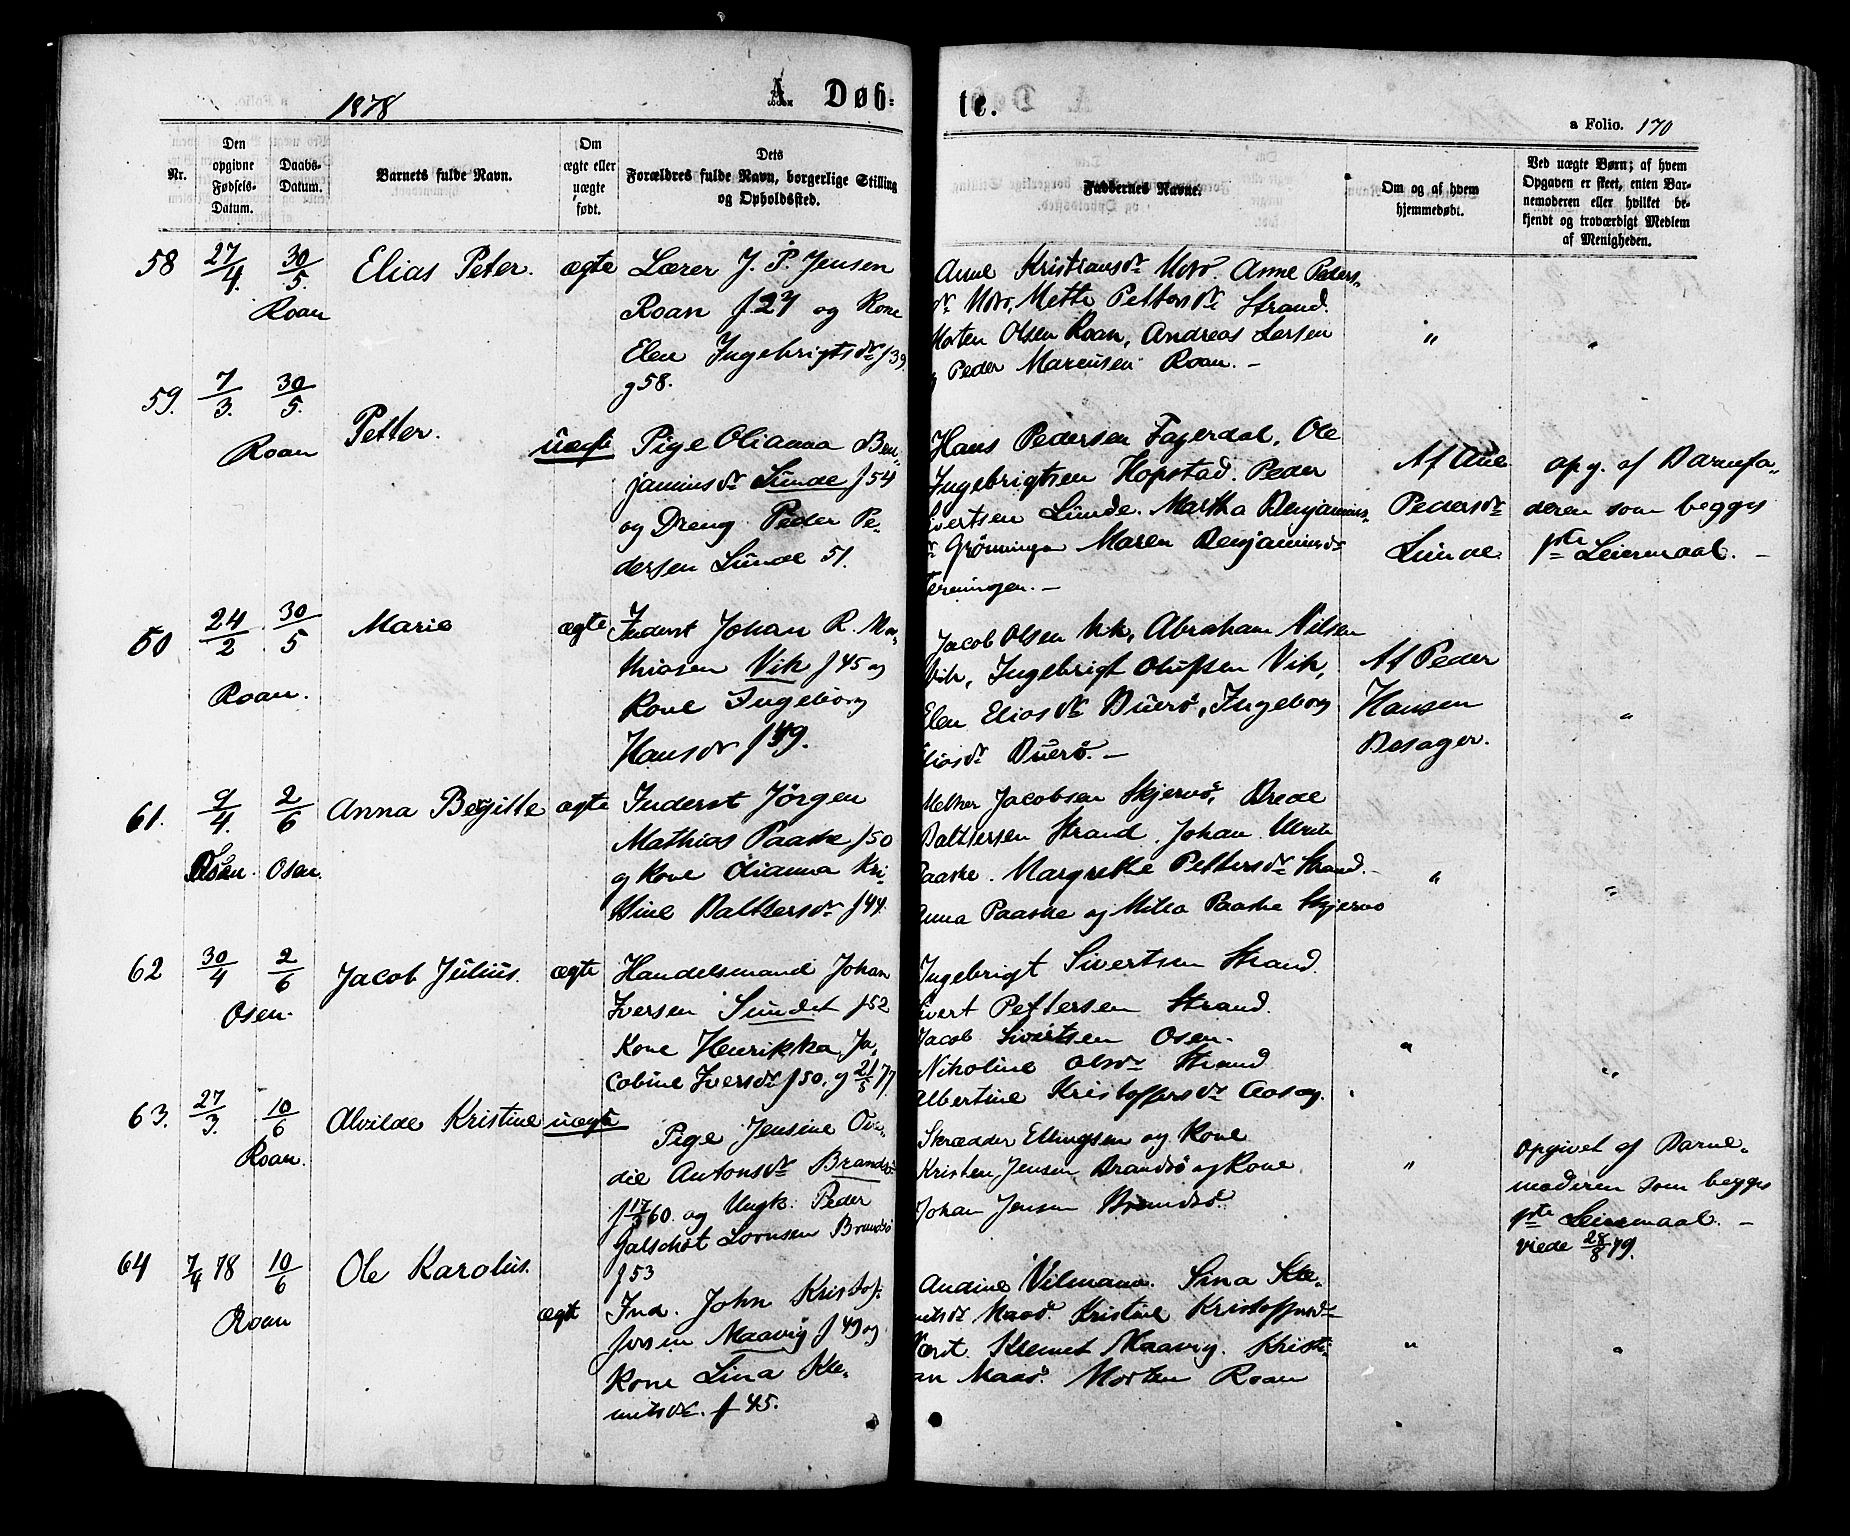 1878
A Døb-
te.
a Folio. 170
Nr.
Den opgivne Fødsels-Datum.
Daabs-Datum.
Barnets fulde Navn.
Om ægte eller uægte født.
Dets Forældres fulde Navn, borgerlige Stilling og Opholdssted.
Faddernes Navne.
Om og af hvem hjemmedøbt.
Ved uægte Børn; af hvem Opgaven er skeet, enten Barnemoderen eller hvilket bekjendt og troværdigt Medlem af Menigheden.
58 27/4. 30/5. Elias Peter. ægte Lærer J. P. Jensen
Roan
Roan f 27 og Kone
Elen Ingebrigtsdr f 39
g 58.
Anne Kristiansdr Moo. Anne Peders-
dr Moo, Mette Pettersdr Strand.
Morten Olsen Roan, Andreas Larsen
g Peder Marcusen Roan. —
" "
59. 7/3. 30/5. Petter. uægte Pige Olianna Ben-
Roan
jaminsdr Lunde f 54
og Dreng Peder Pe-
dersen Lunde 51.
Hans Pedersen Fagerdal, Ole
Ingebrigtsen Hopstad. Peder
Sivertsen Lunde. Martha Benjamins-
dr Grönningen Maren Benjaminsdr
Af Ane
Pedersdr
Lunde
opg. af Barnefa-
deren som begges
1ste Leiermaal. —
60 24/2 30/5 Marie ægte Inderst Johan R. Ma-
Roan.
thiasen Vik f 45 og
Kone Ingeborg
Hansdr f 49.
Jacob Olsen Vik, Abraham Nilsen
Vik, Ingebrigt Olufsen Vik,
Elen Eliasdr Buerö, Ingeborg
Eliasdr Buerö. —
Af Peder
Hansen
Besager.
"
61. 9/4. 2/6 Anna Bergitte ægte Inderst Jörgen
Osen. Osen.
Mathias Paaske f 50
og Kone Olianna Kri-
stine Baltsersdr f 44.
Melker Jacobsen Skjervö, Brede
Baltsersen Strand. Johan Ulrik
Paaske. Margrethe Pettersdr Strand. -
Anna Paaske og Milla Paaske Skjervö
" "
62 30/4 2/6 Jacob Julius. ægte Handelsmand Johan
Osen.
Iversen Sundet f 52
Kone Henrikka Ja-
cobine Iversdr f 50. g 21/5 77
Ingebrigt Sivertsen Strand.
Sivert Pettersen Strand.
Jacob Sivertsen Osen.
Nikoline Olsdr Strand
Albertine Kristoffersdr Aasag.
" "
63. 27/3. 10/6 Alvilde Kristine uægte Pige Jensine Ove-
Roan.
die Antonsdr Brandsö
f 17/3 60. og Ungk. Peder
Galschöt Lornsen Brandsö
f 53
Skrædder Ellingsen og Kone
Kristen Jensen Brandsö og Kone.
Johan Jensen Brandsö.
"
Opgivet af Barne-
moderen som begges
1ste Leiermaal. —
viede 28/8 79.
64 7/4 78 10/6 Ole Karolius. ægte Ind. John Kristof-
Roan
fersen Maavig f 49 og
Kone Lina Kle-
mitsdr. f 45.
Andine Vilmann. Sina Kle-
mitsdr Maaö. Kristine Kristoffersdr
Kremet Maavig. Kristi-
an Maaö. Morten Roan
" "